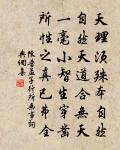 天理須殊本自然
自然天道合無天
一毫小智生穿鑿
所性之真已弗全
陳普孟子行所無事詞